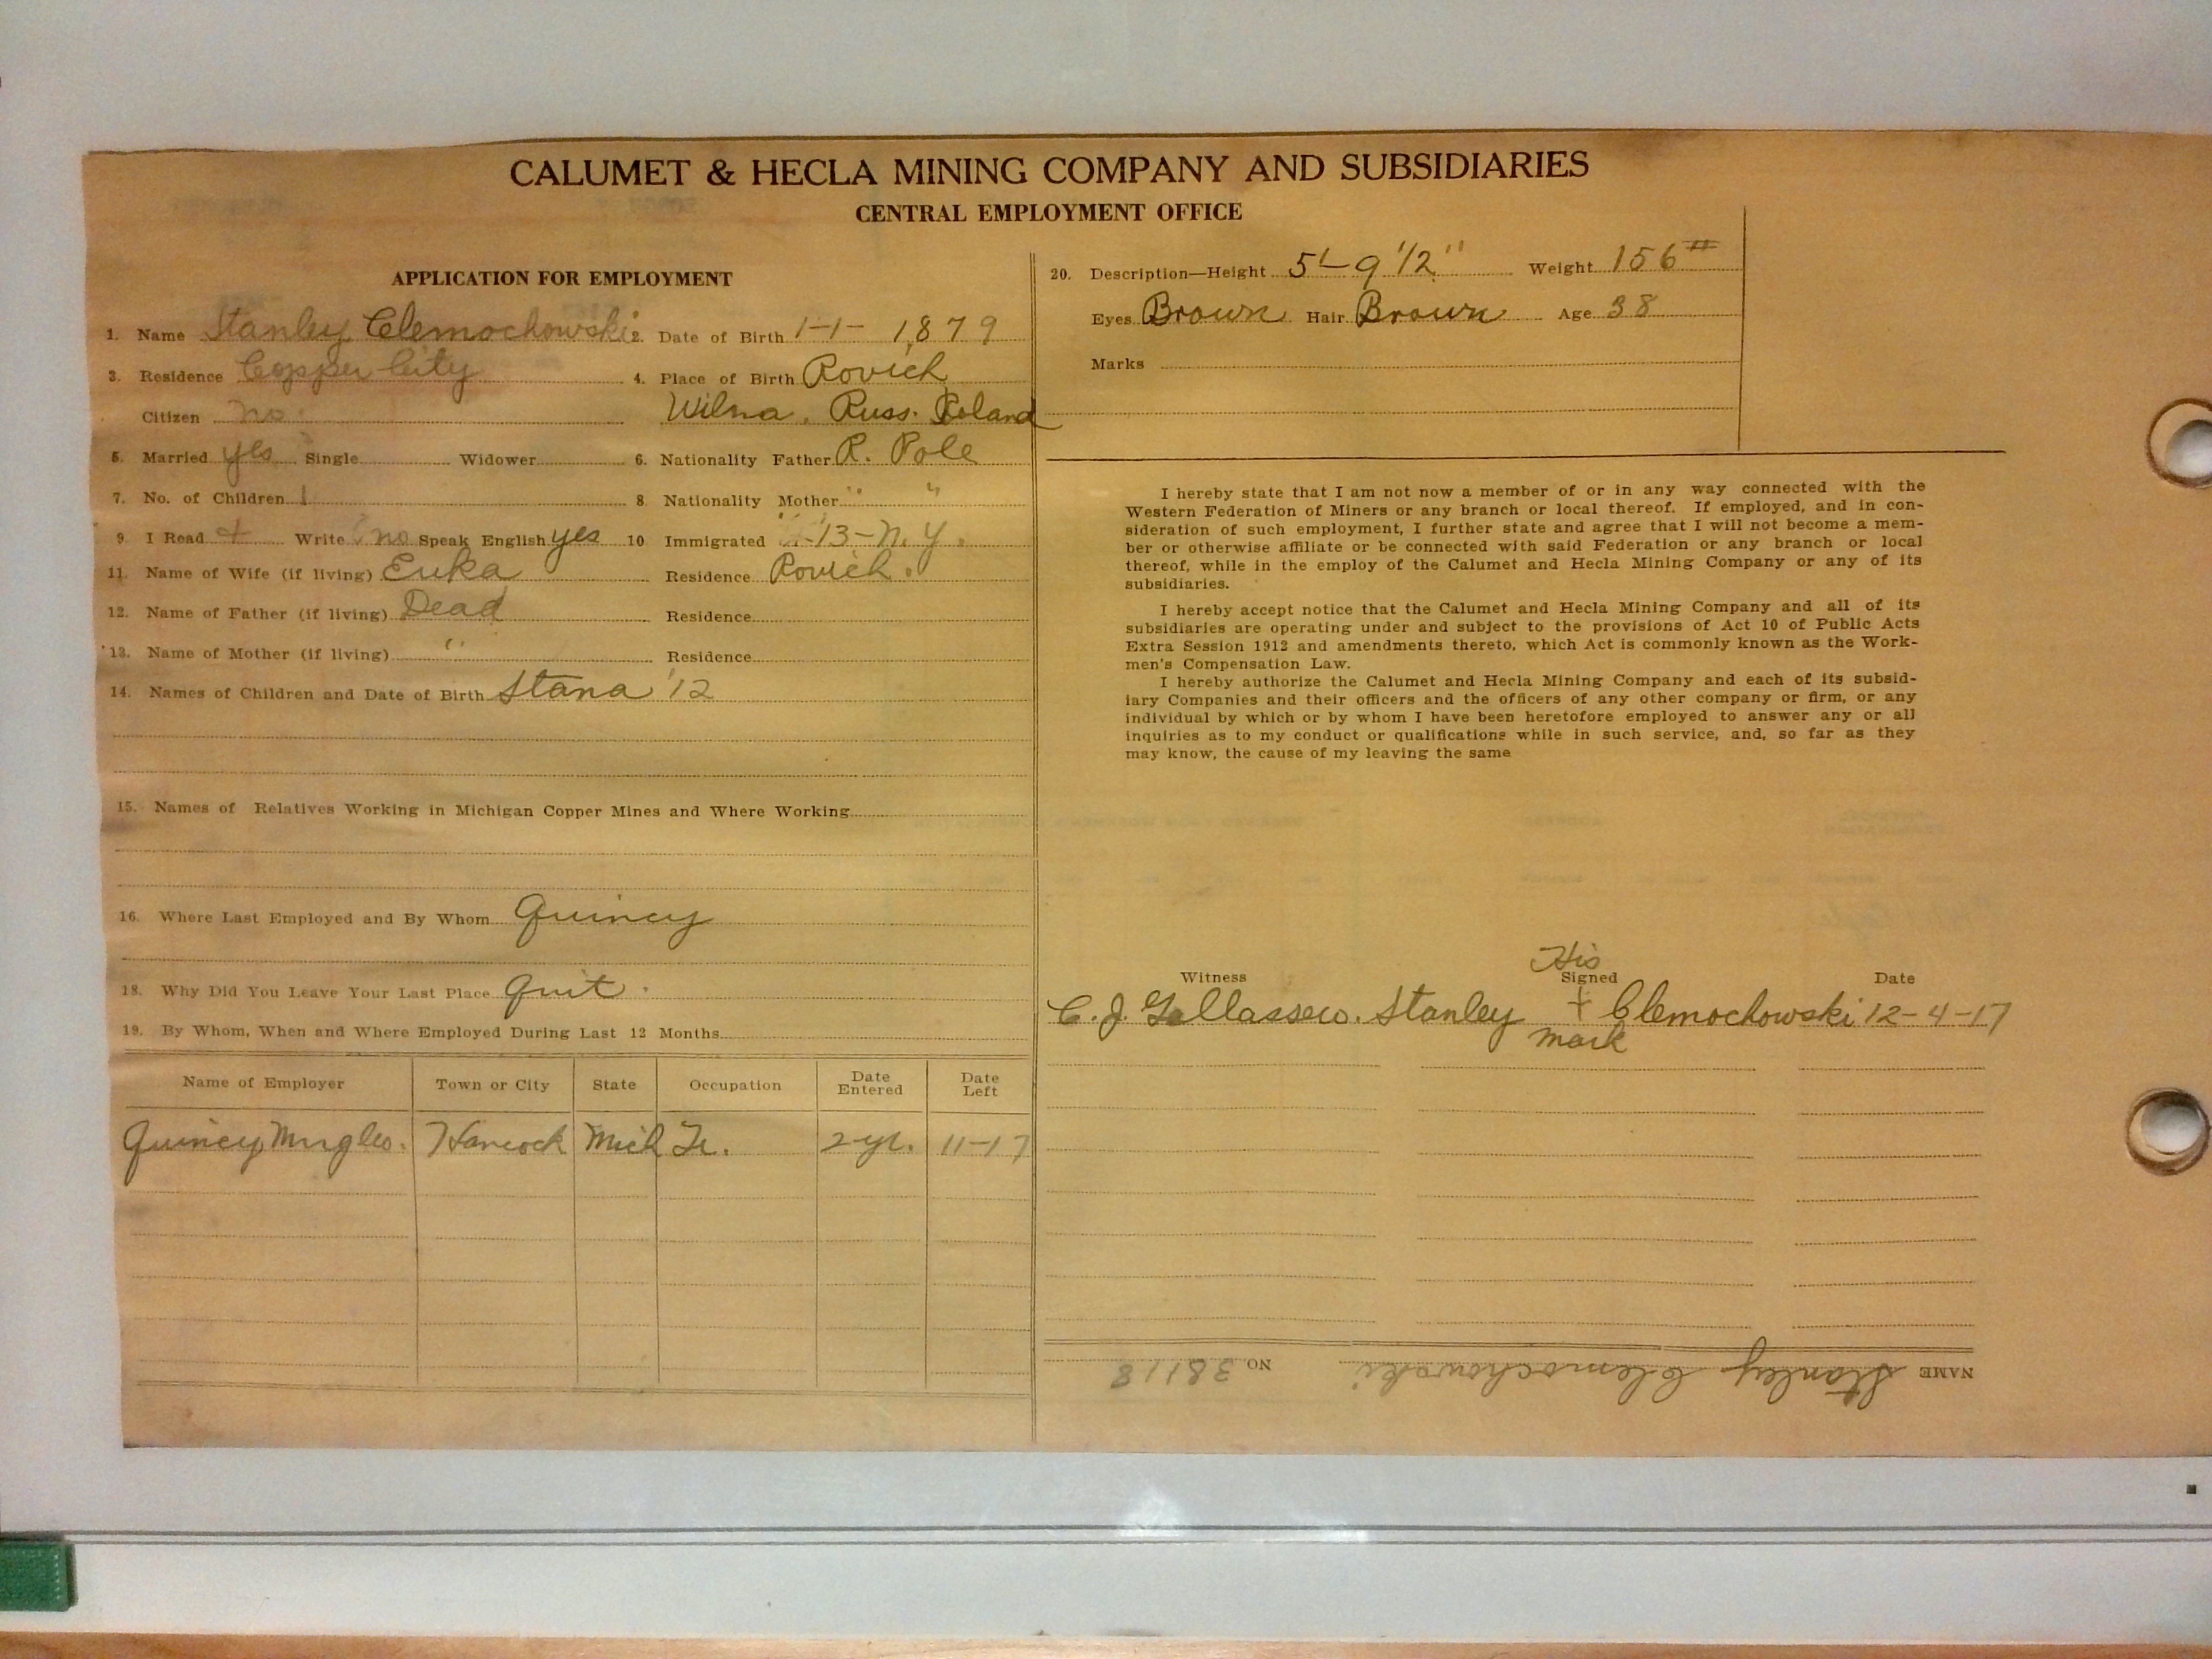 CALUMET & HECLA MINING COMPANY AND SUBSIDIARIES
CENTRAL EMPLOYMENT OFFICE
APPLICATION FOR EMPLOYMENT
1. Name Stanley Clemochowski 2. Date of Birth 1-1- 1879
3. Residence Copper City 4. Place of Birth Rovich
Citizen no. Wilna, Russ. Poland
5. Married yes Single Widower 6. Nationality Father R. Pole
7. No. of Children 1 8. Nationality Mother " "
9. I Read + Write no Speak English yes 10 Immigrated '13-N.Y.
11. Name of Wife (if living) Euka Residence Rovich.
12. Name of Father (if living) Dead Residence
13. Name of Mother (if living) " Residence
14. Names of Children and Date of Birth Stana '12
15. Names of Relatives Working in Michigan Copper Mines and Where Working
16. Where Last Employed and By Whom Quincy
18. Why Did You Leave Your Last Place Quit.
19. By Whom, When and Where Employed During Last 12 Months
Name of Employer Town or City State Occupation Date Entered Date Left
Quincy Hancock Mich Tr. 2 yr. 11-17
20. Description—Height 5'-9 1/2" Weight 156#
Eyes Brown Hair Brown Age 38
Marks
I hereby state that I am not now a member of or in any way connected with the
Western Federation of Miners or any branch or local thereof. If employed, and in con-
sideration of such employment, I further state and agree that I will not become a mem-
ber or otherwise affiliate or be connected with said Federation or any branch or local
thereof, while in the employ of the Calumet and Hecla Mining Company or any of its
subsidiaries.
I hereby accept notice that the Calumet and Hecla Mining Company and all of its
subsidiaries are operating under and subject to the provisions of Act 10 of Public Acts
Extra Session 1912 and amendments thereto, which Act is commonly known as the Work-
men's Compensation Law.
I hereby authorize the Calumet and Hecla Mining Company and each of its subsid-
iary Companies and their officers and the officers of any other company or firm, or any
individual by which or by whom I have been heretofore employed to answer any or all
inquiries as to my conduct or qualifications while in such service, and, so far as they
may know, the cause of my leaving the same
His
Witness Signed Date
C. J. Stanley + Clemochowski 12-4-17
mark
NAME Stanley Clemochowski NO 38118